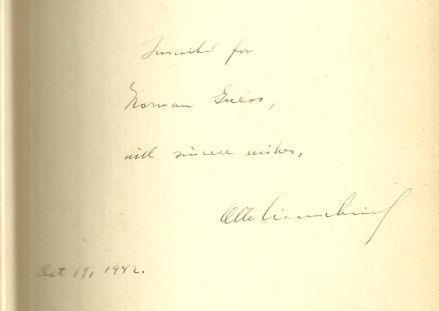 Inscribed for
Norman Guess,
with sincere wishes,
Otto
Oct 19, 1942.